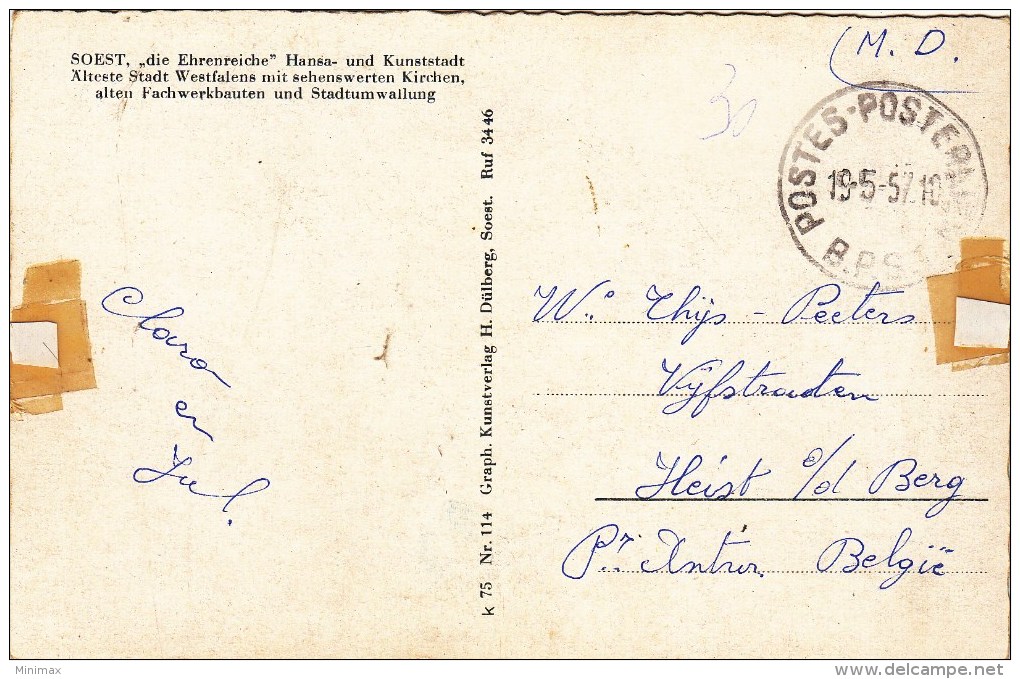 SOEST, „die Ehrenreiche” Hansa- und Kunststadt
Älteste Stadt Westfalens mit sehenswerten Kirchen,
alten Fachwerkbauten und Stadtumwallung
(M. D.
30
POSTES-POSTERIJEN
19-5-57. 10
B.P.S.
k 75 Nr. 114 Graph. Kunstverlag H. Dülberg, Soest. Ruf 3446
Clara
en
Jul.
We Thijs - Peeters
Vijfstraten
Heist o/d Berg
Pr. Antw. België
Minimax
www.delcampe.net